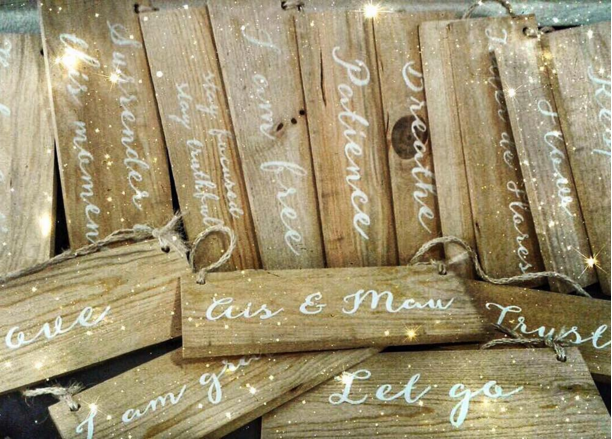 Surrender
this moment
stay focused
stay truthful
I am free
Patience
Breathe
de Hares
Slow
Keep
Love
Ais & Maw
Trust
I am
Let go